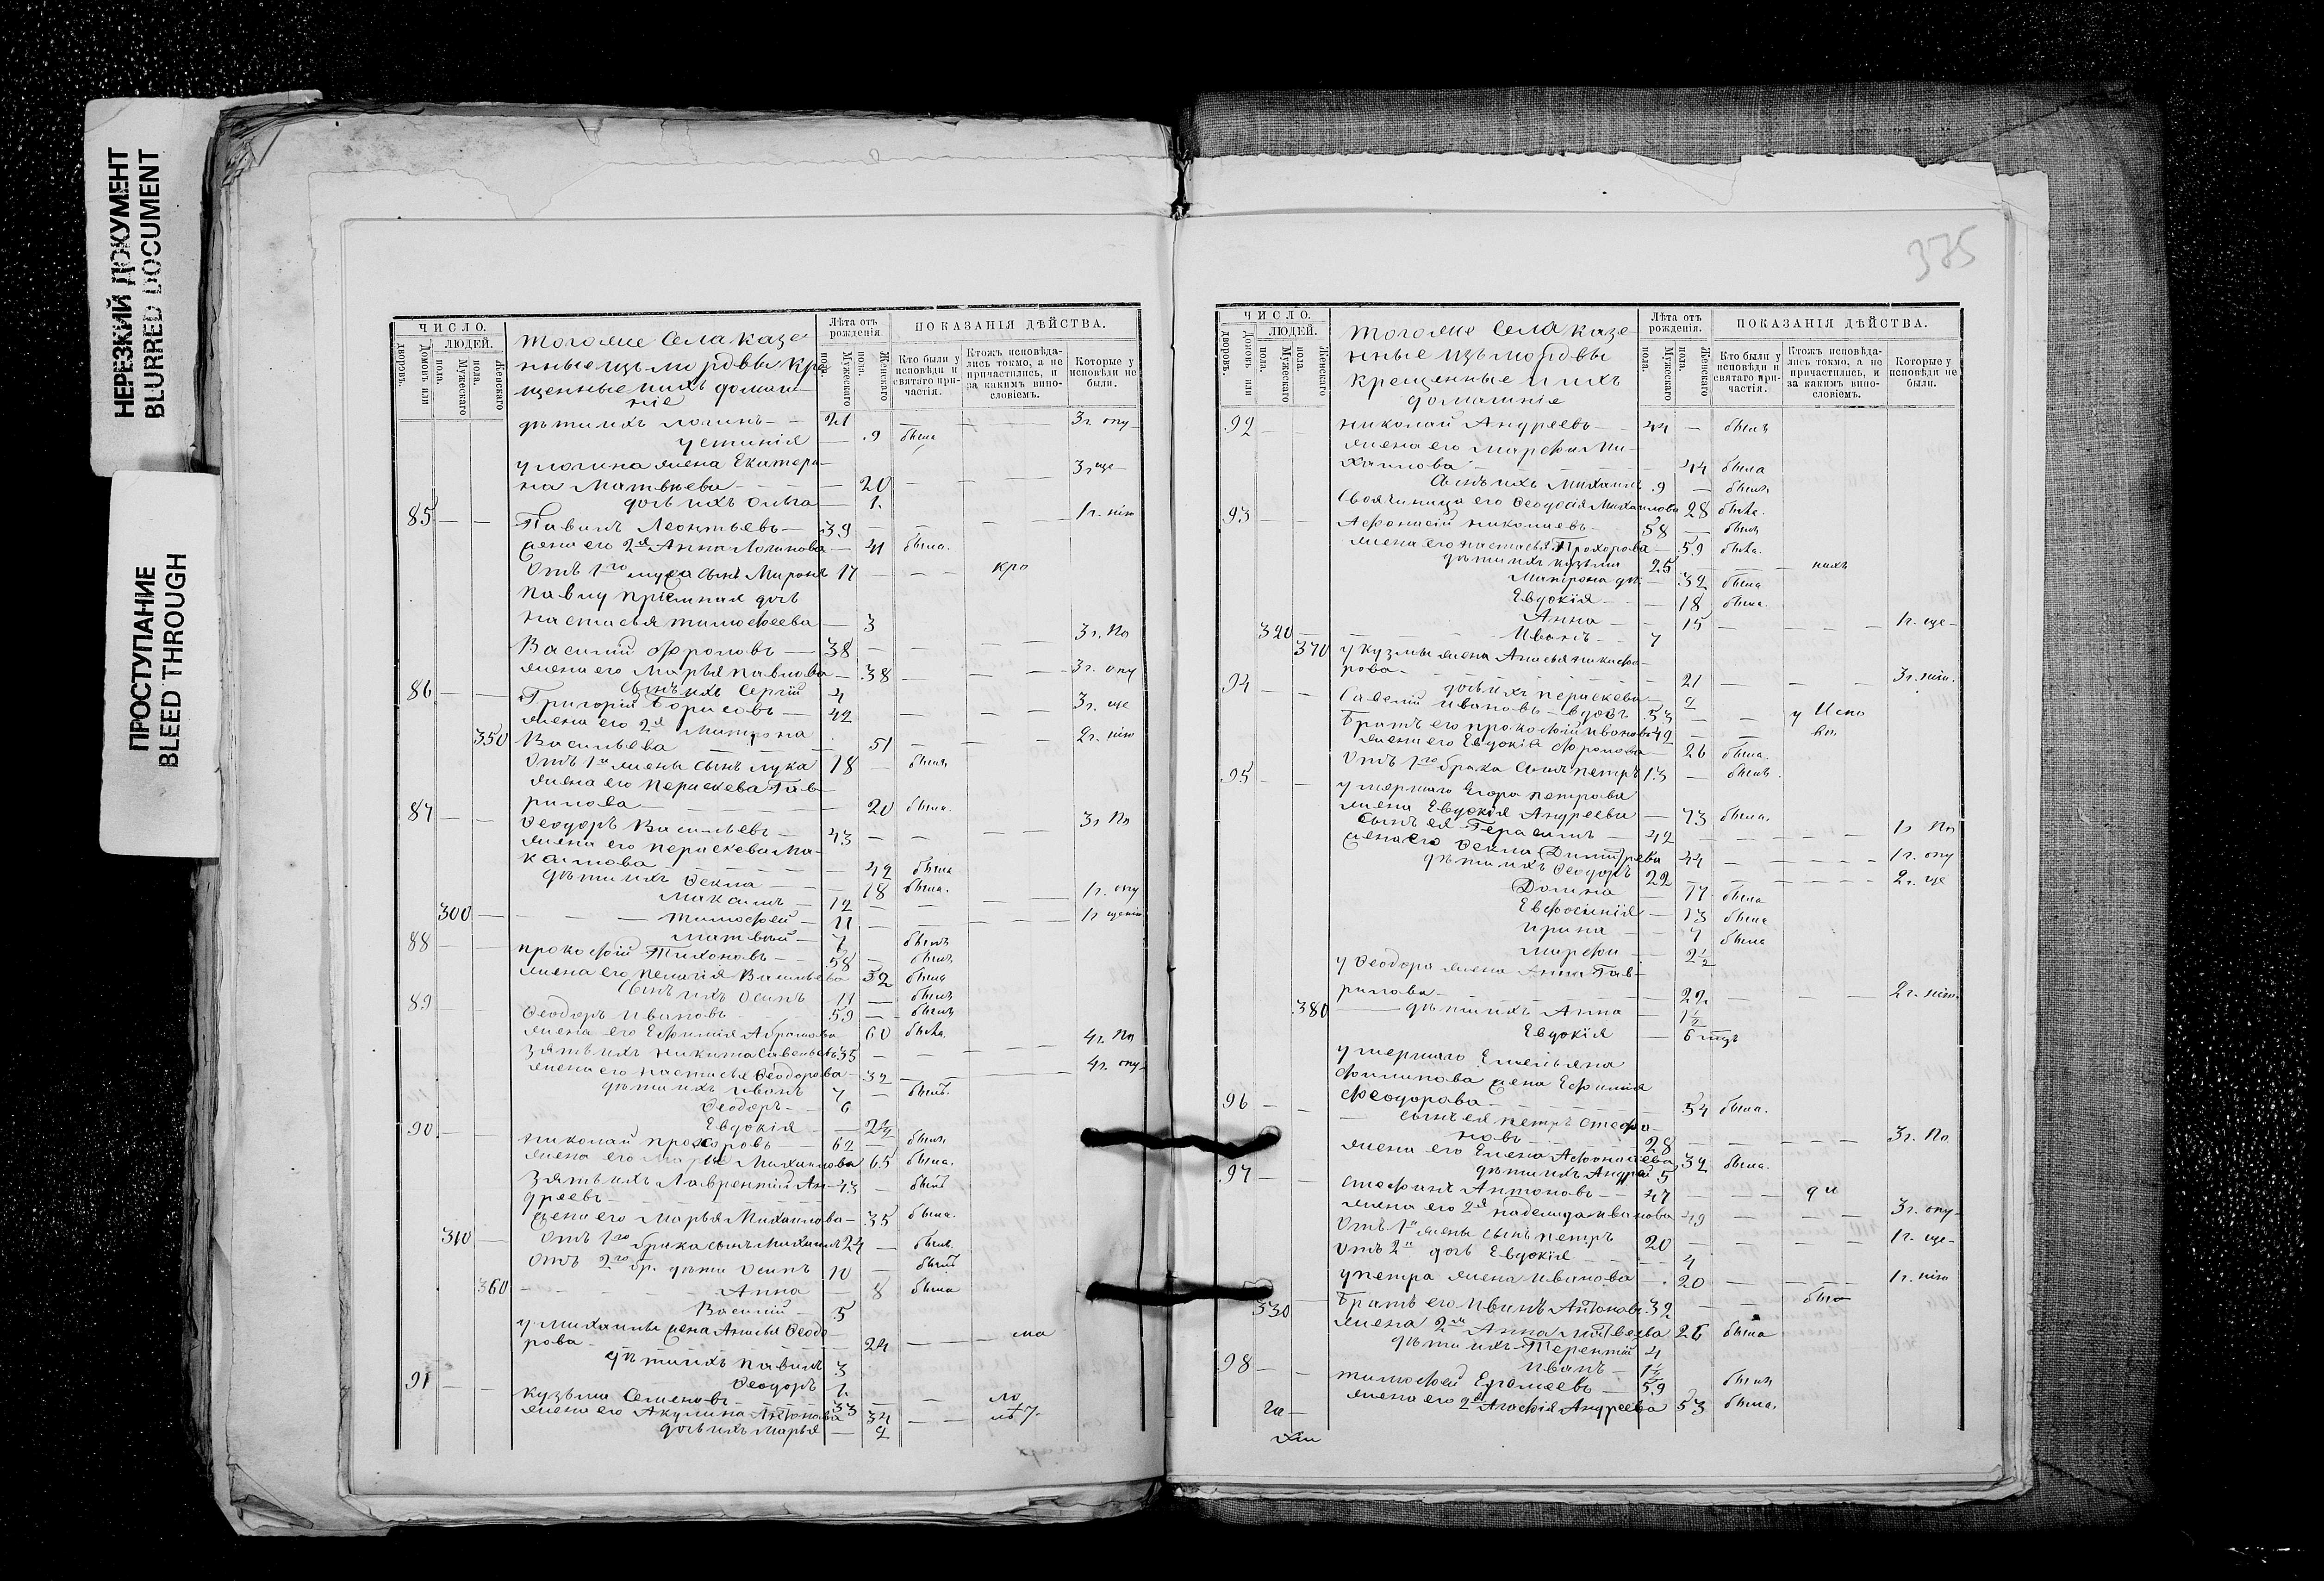 НЕРЕЗКИЙ ДОКУМЕНТ
BLURRED DOCUMENT
ПРОСТУПАНИЕ
BLEED THROUGH
ЧИСЛО.
ЛЮДЕЙ.
Домовъ или дворовъ.
Мужескаго пола.
Женскаго пола.
тогоже Села казе
нные изъ мордвы кре
щенные и ихъ домаш-
ніе
Лѣта отъ рожденія.
Мужескаго пола.
Женскаго пола.
ПОКАЗАНІЯ ДѢЙСТВА.
Кто были у исповѣди и святаго причастія.
Ктожъ исповѣдались токмо, а не причастились, и за какимъ винословіемъ.
Которые у исповѣди не были.
дѣти ихъ Логинъ 21 3 г. опу
Устинія 9 была
у Логина жена Екатери
на Матвѣева 20 3 г ще
дочь ихъ Ольга 1
85 Павелъ Леонтьевъ 39 1 г. нію
жена его 2я Анна Логинова 41 была.
Отъ 1го мужа сынъ Миронъ 17 кро
Павлу пріемная дочь
Настасья Тимофеева 3
Василий Фроловъ 38 3 г. По
жена его Марья Павлова 38 3 г. опу
сынъ ихъ Сергій 4
86 Григорій Борисовъ 42 3 г. ще
жена его 2я Матрона
350 Васильева 51 2 г. нію
Отъ 1й жены сынъ Лука 18 былъ
жена его Пераскева Гав
рилова 20 была.
87 Ѳеодоръ Васильевъ 43 3 г По
жена его Пераскева Ма-
ксимова 42 была
дѣти ихъ Ѳекла 18 была.
Максимъ 12 1 г. опу
300 Тимофей 11 1 г щенію
Матвѣй 7 былъ
88 Прокофій Тихоновъ 58 былъ
жена его Пелагія Васильева 52 была
сынъ ихъ Осипъ 11 былъ
89 Ѳеодоръ Ивановъ 59 былъ
жена его Ефимія Абрамова 60 была.
зять ихъ Никита Савельевъ 35 4 г. По
жена его Настасья Ѳеодорова 32 4 г. опу
дѣти ихъ Иванъ 7 былъ.
Ѳеодоръ 6
Евдокія 2½
90 Николай Прохоровъ 62 былъ
жена его Марья Михаилова 65 была.
Зять ихъ Лаврентій Ан- 43 былъ
дреевъ
жена его Марья Михаилова 35 была.
310 Отъ 1го брака сынъ Михаилъ 24 былъ.
Отъ 2го бр. дѣти Осипъ 10 былъ
360 Анна 8 была
Василий 5
у Михаилы жена Анисья Ѳеодо
рова 24 ма
дѣти ихъ Павелъ 3
Ѳеодоръ 1
91 Кузьма Семеновъ 33 ло
жена его Акулина Антонова 34
дочь ихъ Марья 2
375
ЧИСЛО.
ЛЮДЕЙ.
Домовъ или дворовъ.
Мужескаго пола.
Женскаго пола.
тогоже Села казе
нные изъ мордвы
крещенные и ихъ
домашнія
Лѣта отъ рожденія.
Мужескаго пола.
Женскаго пола.
ПОКАЗАНІЯ ДѢЙСТВА.
Кто были у исповѣди и святаго причастія.
Ктожъ исповѣдались токмо, а не причастились, и за какимъ винословіемъ.
Которые у исповѣди не были.
92 Николай Андреевъ 44 былъ
жена его Марфа Ми-
хаилова 44 была
Сынъ ихъ Михаилъ 9 былъ
Своячиница его Ѳеодосія Михаилова 28 была.
93 Афонасій Николаевъ 58 былъ
жена его Настасья Прохорова 59 была.
дѣти ихъ Кузьма 25 нихъ
Матрона дѣ 32 была
Евдокія 18 была.
Анна 15 1 г. ще
320 Иванъ 7
370 у Кузьмы жена Анисья Никифо-
рова 21 3 г. нію.
дочь ихъ Пераскева 2
94 Савелій Ивановъ вдовъ 53 у Испо
Братъ его Прокофій Ивановъ 42
жена его Евдокія Фролова 26 была.
Отъ 1го брака сынъ Петръ 13 былъ.
95 умершаго Егора Петрова
жена Евдокія Андреева 73 была.
сынъ ея Герасимъ 42 1 г По
жена его Ѳекла Димитрева 44 1 г. опу
дѣти ихъ Ѳеодоръ 22 2 г. ще
Домна 17 была
Евфосинія 13 была
Ирина 7 была
Марфа 2½
у Ѳеодора жена Анна Гав-
рилова 22 2 г. нію
380 дѣти ихъ Анна 1½
Евдокія 6 мцъ
умершаго Емельяна
Филипова жена Ефимія
Феодорова 54 была.
96 сынъ ея Петръ Стефа-
новъ 28 3 г. По
жена его Елена Афонасіева 32 была.
дѣти ихъ Андрей 5
97 Стефанъ Антоновъ 47 ди
жена его 2я Надежда Иванова 49 3 г. опу
Отъ 1й жены сынъ Петръ 20 1 г. ще
отъ 2й дочь Евдокія 4
у Петра жена Иванова 20 1 г. нію
330 Братъ его Иванъ Антоновъ 32 было
жена 2я Анна Матвеева 26 была
дѣти ихъ Терентій 4
Иванъ 1½
98 Тимофей Ермолаевъ 59 былъ
жена его 2я Агафія Андреева 53 была.